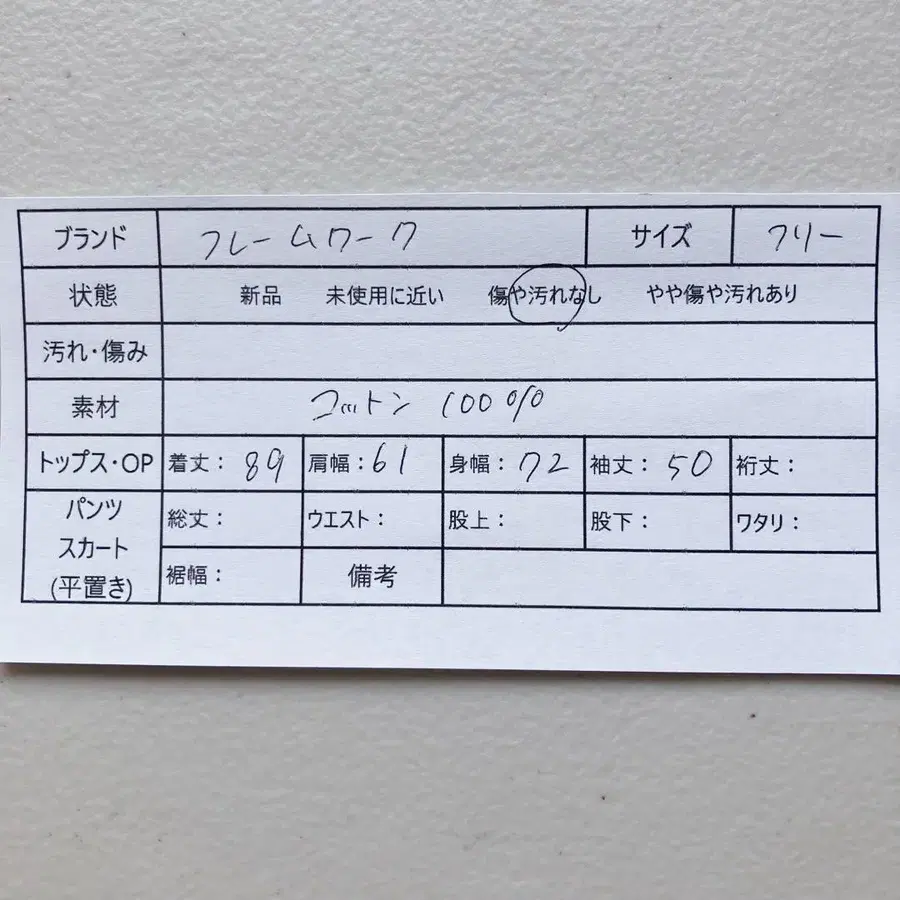 ブランド フレームワーク サイズ フリー
状態 新品 未使用に近い 傷や汚れなし やや傷や汚れあり
汚れ・傷み
素材 コットン 100%
トップス・OP 着丈: 89 肩幅: 61 身幅: 72 袖丈: 50 裄丈:
パンツ
スカート
(平置き)
総丈: ウエスト: 股上: 股下: ワタリ:
裾幅: 備考